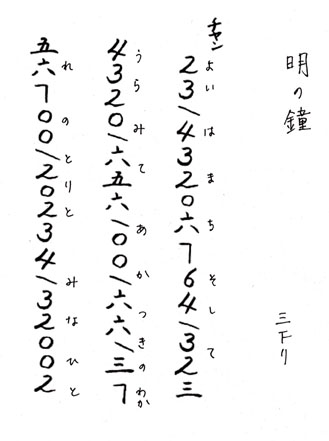 明の鐘
三下り
チャン
よいはまちそして
23/4320六764/32三
うらみて あかつきのわか
4320/六五六/00/六六/三7
れのとりと みなひと
五六700/20234/32002